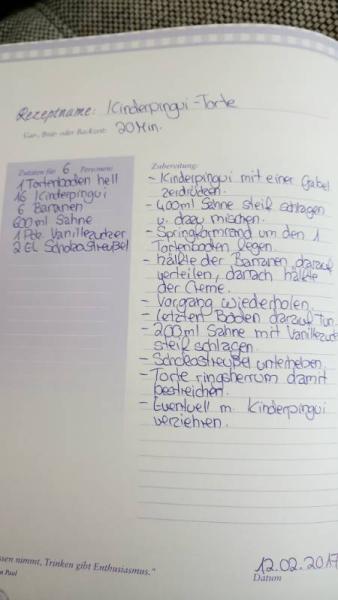 Rezeptname: Kinderpingui-Torte
Gar-, Brat- oder Backzeit: 20 Min.
Zutaten für 6 Personen:
1 Tortenboden hell
16 Kinderpingui
6 Bananen
600ml Sahne
1 Pck. Vanillezucker
2 EL Schokostreußel
Zubereitung:
- Kinderpingui mit einer Gabel
zerdrücken.
- 400ml Sahne steif schlagen
u. dazu mischen.
- Springformrand um den 1
Tortenboden legen.
- hälfte der Bananen darauf
verteilen, danach hälfte
der Creme.
- Vorgang wiederholen.
- letzten Boden darauf tun.
- 200ml Sahne mit Vanillezucker
steif schlagen.
- Schokostreußel unterheben.
- Torte ringsherrum damit
bestreichen.
- Eventuell m. Kinderpingui
verziehren.
ssen nimmt, Trinken gibt Enthusiasmus."
n Paul
12.02.2017
Datum